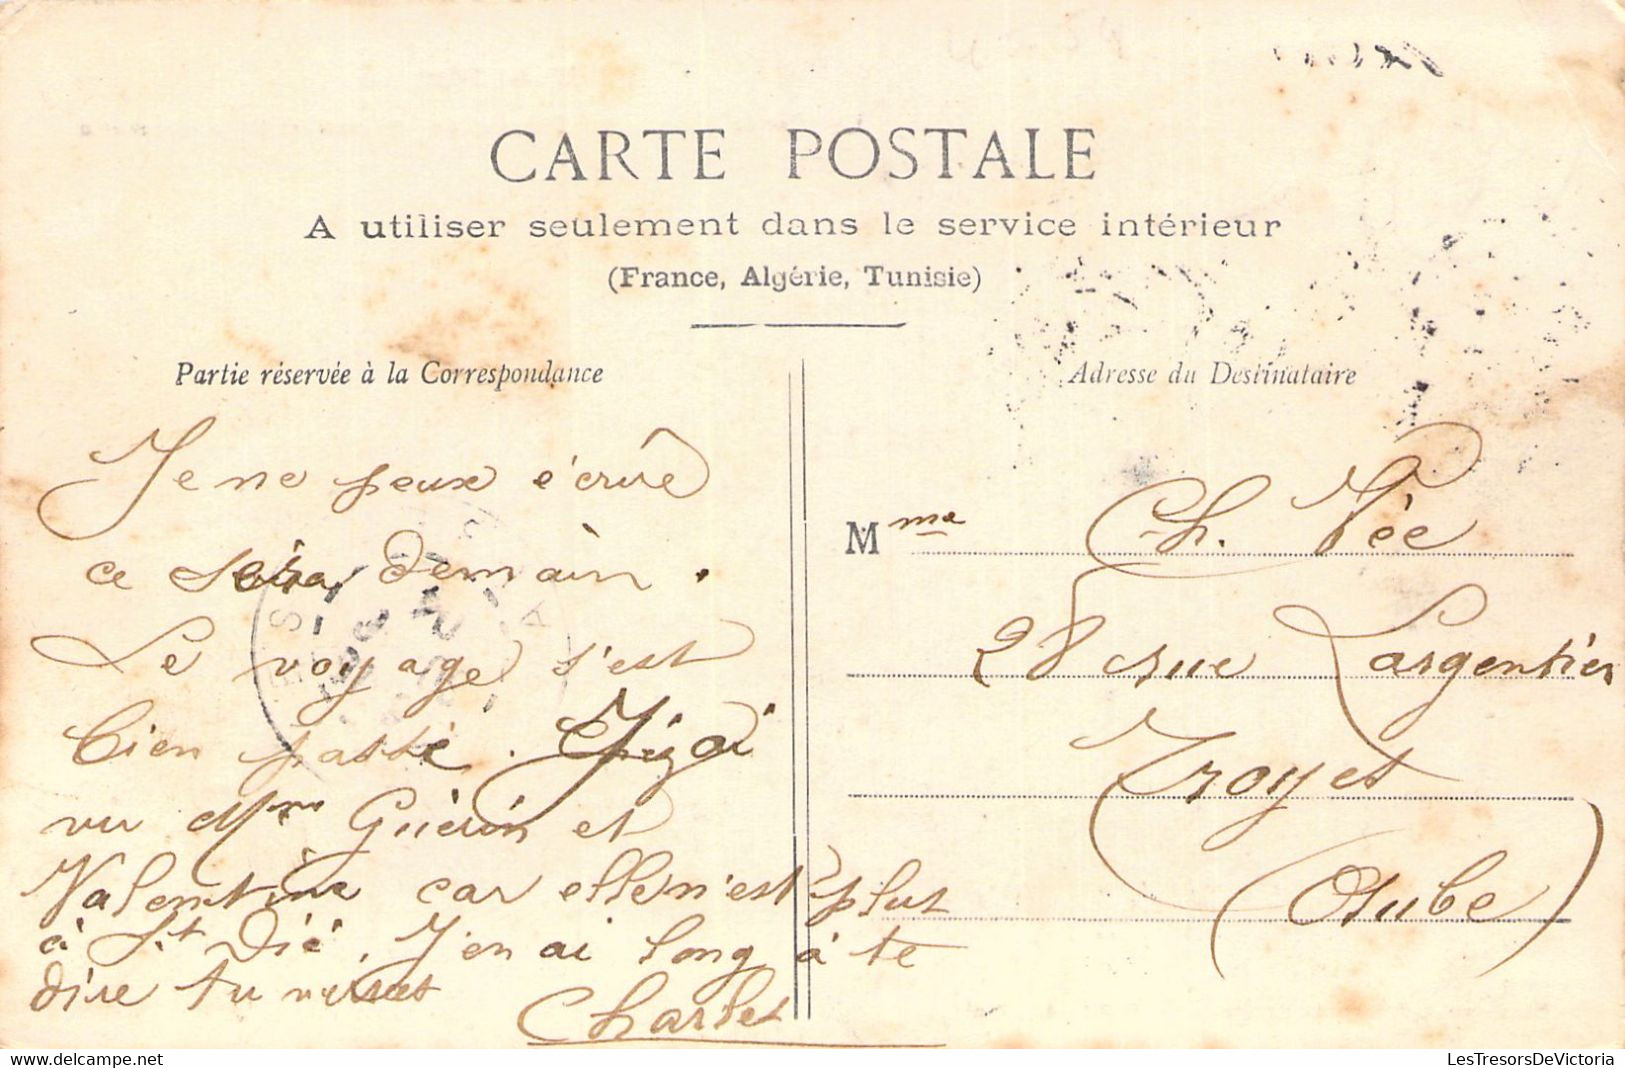 CARTE POSTALE
A utiliser seulement dans le service intérieur
(France, Algérie, Tunisie)
Partie réservée à la Correspondance
Je ne peux écrire
ce soir, demain.
Le voyage s'est
bien passé. J'ai
vu Mme Guérin et
Valentine car elle n'est plus
à St Dié. J'en ai long à te
dire tu verras
Charles
Adresse du Destinataire
Mme Ch. Fée
28 rue Largentier
Troyes
(Aube)
LesTresorsDeVictoria
https://www.delcampe.net